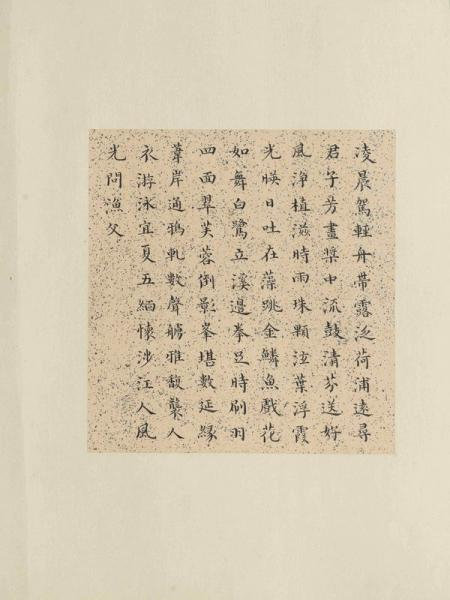 凌晨駕輕舟帶露泛荷浦遠尋
君子芳畫槳中流鼓清芬送好
風淨植滋時雨珠顆泣葉浮霞
光映日吐在藻跳金鱗魚戲花
如舞白鷺立溪邊拳足時刷羽
四面翠芙蓉倒影峯堪數延緣
葦岸通鴉軋數聲艣雅馥襲人
衣游泳宜夏五緬懷涉江人風
光問漁父